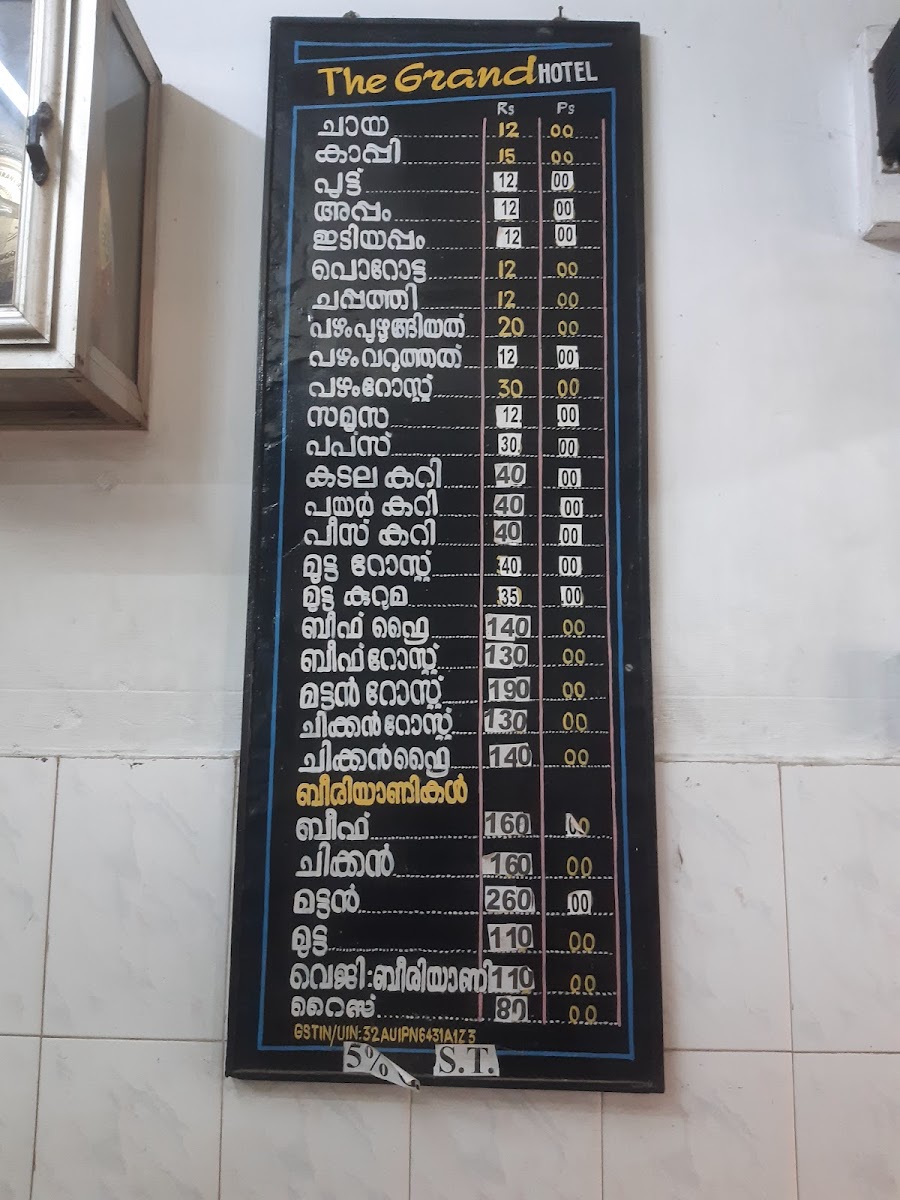 The Grand HOTEL
Rs Ps
ചായ 12 00
കാപ്പി 15 00
പുട്ട് 12 00
അപ്പം 12 00
ഇടിയപ്പം 12 00
പൊറോട്ട 12 00
ചപ്പത്തി 12 00
പഴംപുഴുങ്ങിയത് 20 00
പഴംവറുത്തത് 12 00
പഴംറോസ്റ്റ് 30 00
സമൂസ 12 00
പപ്സ് 30 00
കടല കറി 40 00
പയർ കറി 40 00
പീസ് കറി 40 00
മുട്ട റോസ്റ്റ് 40 00
മുട്ട കുറുമ 35 00
ബീഫ് ഫ്രൈ 140 00
ബീഫ്റോസ്റ്റ് 130 00
മട്ടൻ റോസ്റ്റ് 190 00
ചിക്കൻറോസ്റ്റ് 130 00
ചിക്കൻഫ്രൈ 140 00
ബീരിയാണികൾ
ബീഫ് 160 00
ചിക്കൻ 160 00
മട്ടൻ 260 00
മുട്ട 110 00
വെജി:ബീരിയാണി 110 00
റൈസ് 80 00
GSTIN/UIN:32AUIPN6431A1Z3
5% S.T.